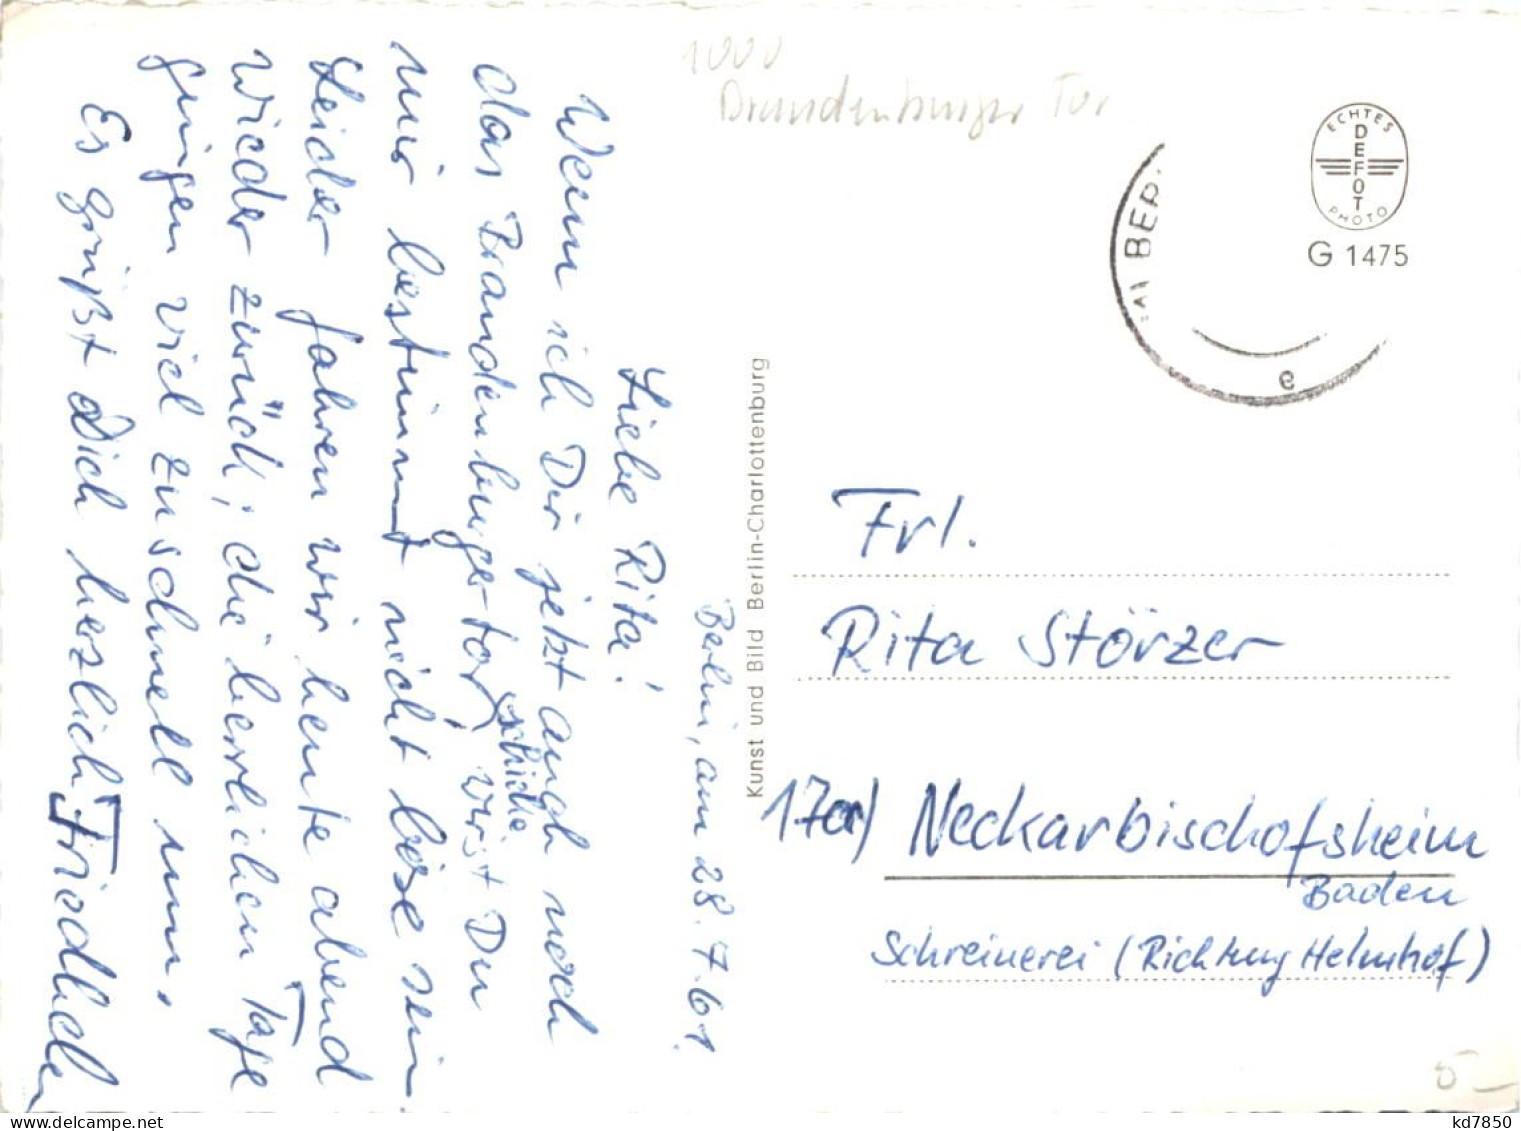 Berlin, am 28.7.61.
Liebe Rita!
Wenn ich Dir jetzt auch noch
das Brandenburger-tor schicke, wirst Du
mir bestimmt nicht böse sein.
Leider fahren wir heute abend
wieder zurück; die herrlichen Tage
gingen viel zu schnell um.
Es grüßt Dich herzlich
1000
Brandenburger Tor
ECHTES
DEFOT
PHOTO
G 1475
BER
e
Kunst und Bild Berlin-Charlottenburg
Frl.
Rita Störzer
17a) Neckarbischofsheim
Baden
Schreinerei (Richtung Helmhof)
kd7850